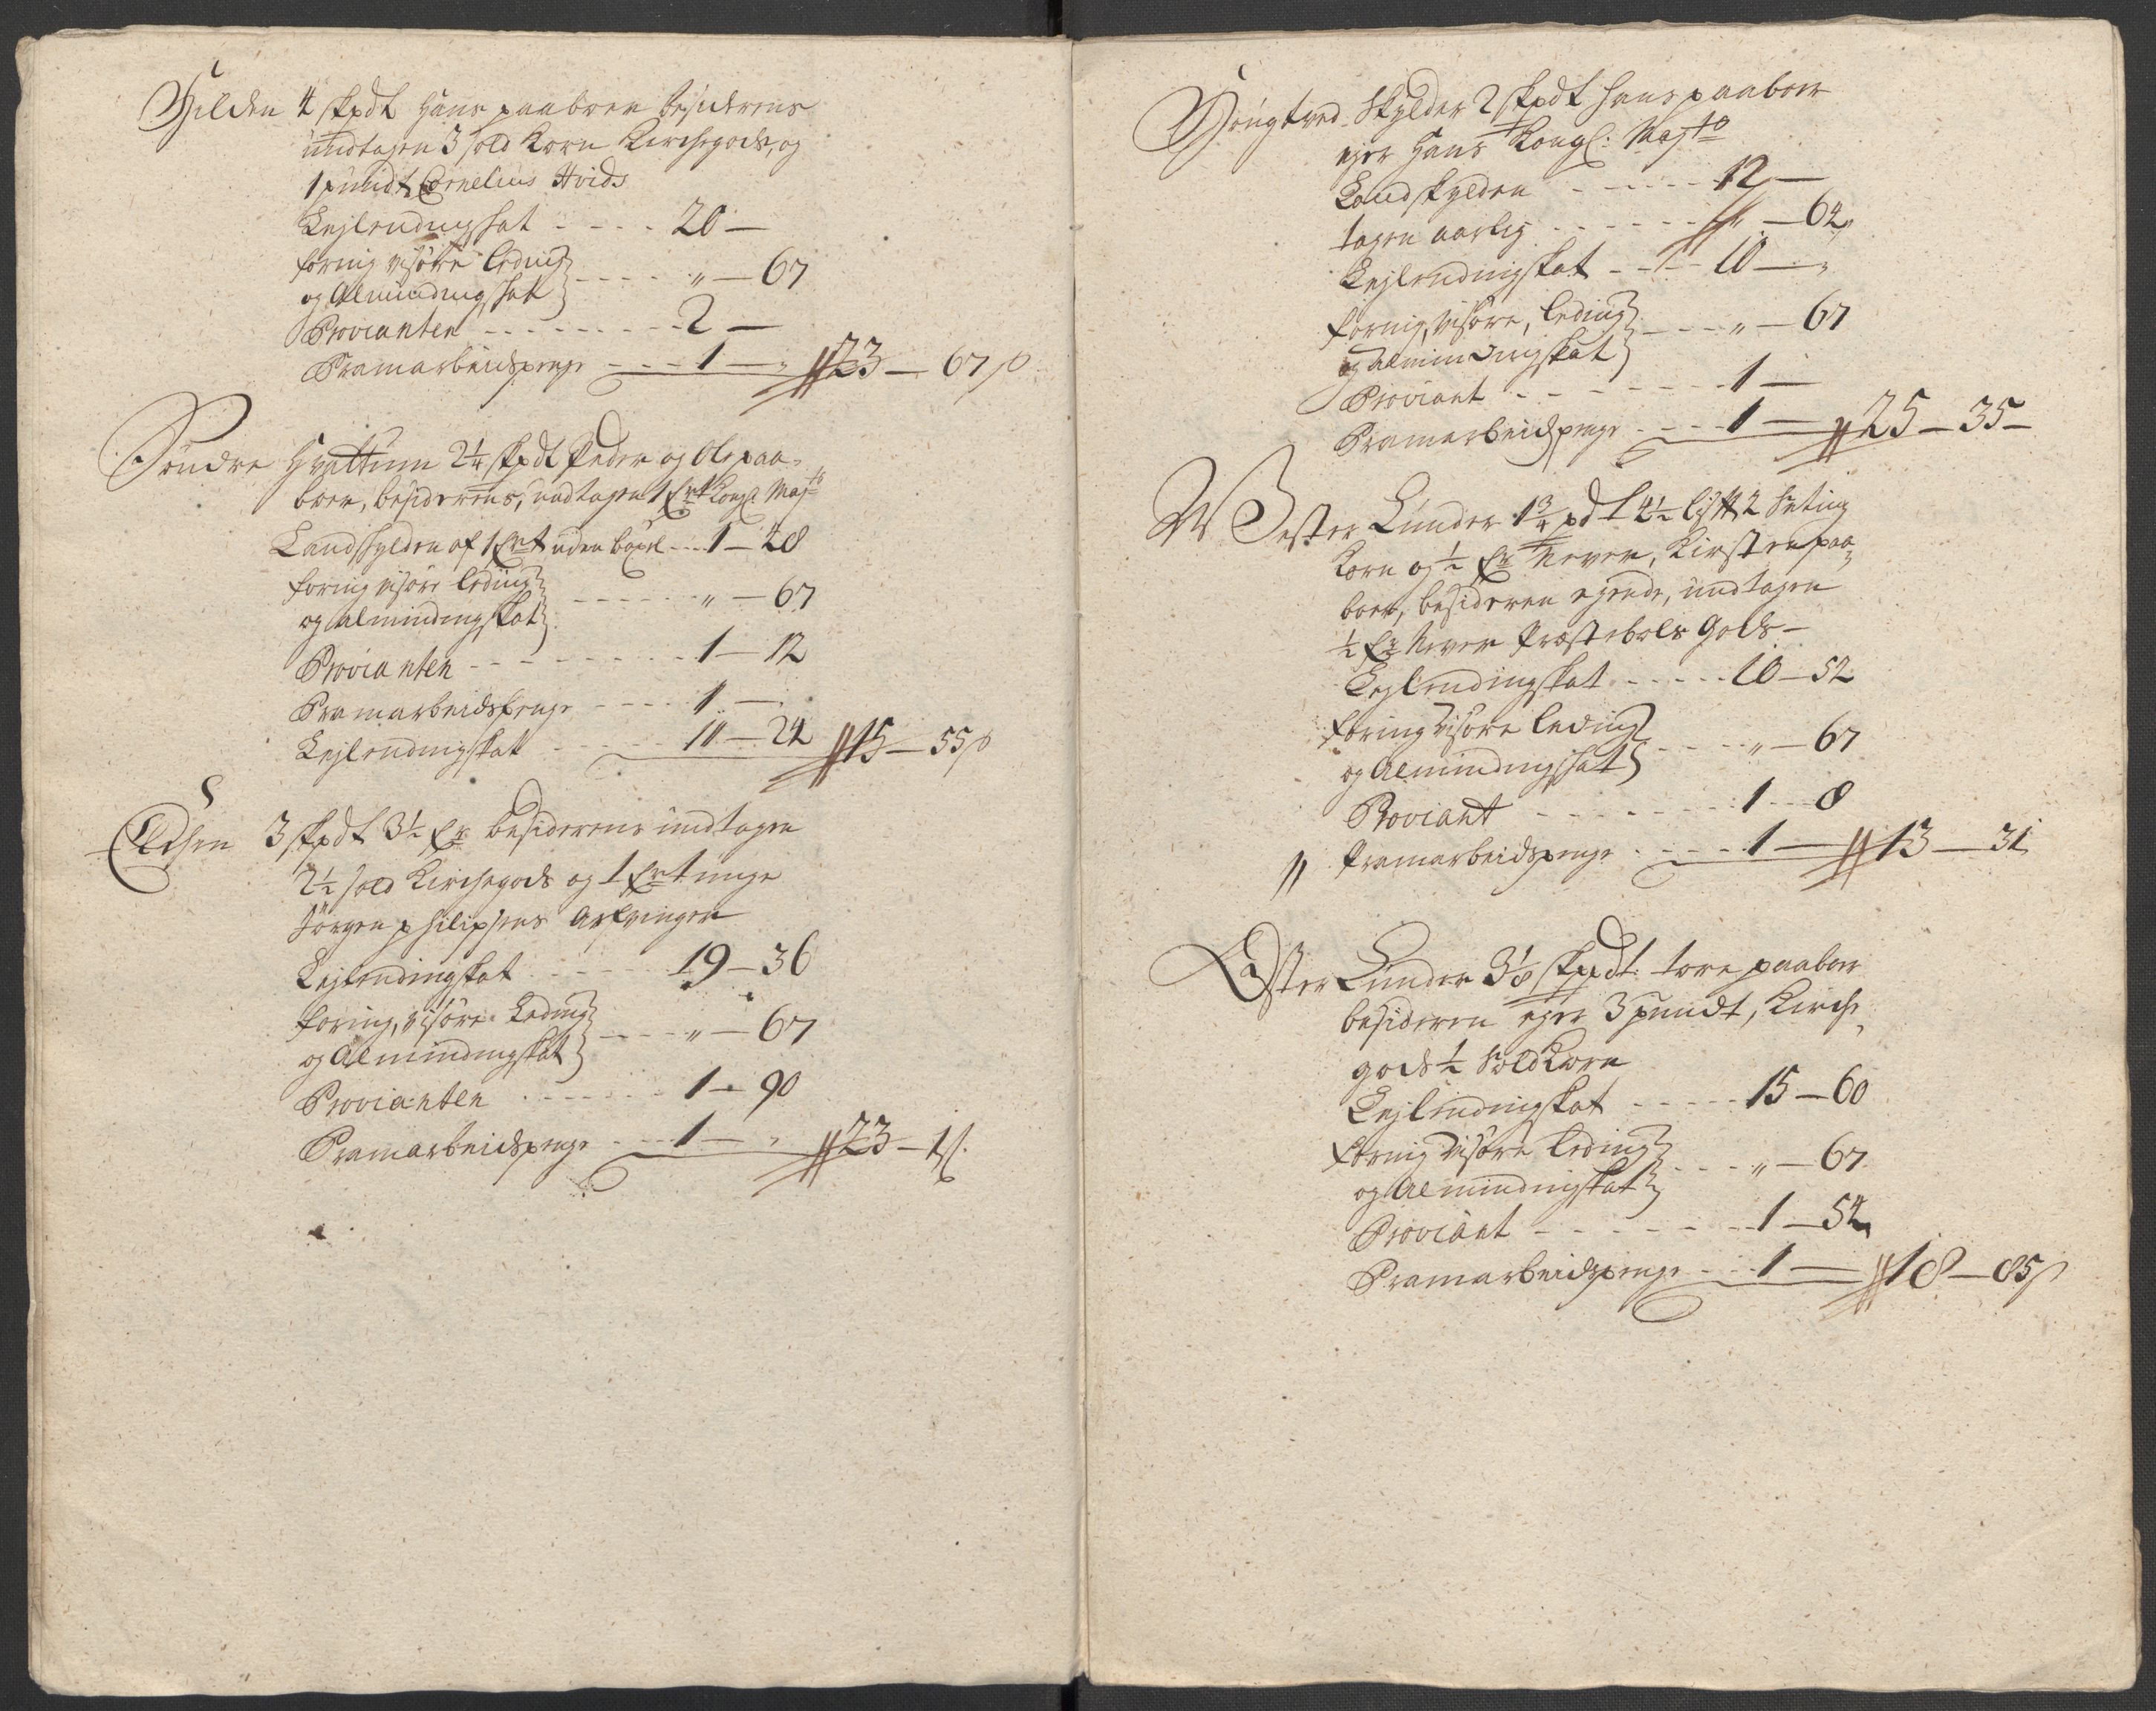 Hilden 4 skpdt Hans paaboer besiderens
undtagen 3 sold Korn Kirchegods, og
1 pundt Cornelius Hvids
Lejlendingskat - - - - 20 —
foring visøre leding
og Almindingskat - - - - „ — 67
Provianten - - - - - - - - 2 —
Pramarbeidspenge - - - 1 — „ 23 — 67 s
Søndre Hvattum 2 1/4 skpdt Peder og Ole paa-
boer, besiderens, undtagen 1 frt Kongl Maj
Landskylden af 1 frt uden bøxel - - 1 — 28
foring visøre leding
og almindingskat - - - - - - „ — 67
Provianten - - - - - - - - 1 — 12
Pramarbeidspenge - - - - 1 —
Lejlendingskat - - - - - 11 — 24 15 — 55 s
3 skpdt 3 1/2 fr besiderens undtagen
2 1/2 sold Kirchegods og 1 frt unge
Jørgen philipsens Arfvinger
Lejlendingskat - - - - - 19 — 36
foring, visøre Leding
og Almindingskat - - - - „ — 67
Provianten - - - - - - - 1 — 90
Pramarbeidspenge - - - 1 — „ 23 — 1 s.
skylder 2 skpdt hans paaboer
ejer Hans Kongl: Maysto
Landskylden - - - - - - 12 —
tagen aarlig - - - - - - „ — 64
Lejlendingskat - - - - 10 — „
foring, visøre, leding
og almindingskat - - - - „ — 67
Proviant - - - - - - - - 1 —
Pramarbeidspenge - - - - 1 — 25 — 35 —
Wester Lunder 1 3/4 pdt 4 1/2 2 seting
Korn og 1/2 fr Never, Kirsten paa-
boer, besideren egende, undtagen
1/2 fr Never Præstebols Gods —
Lejlendingskat - - - - - 10 — 52
foring visøre leding
og Almindingskat - - - - „ — 67
Proviant - - - - - - - 1 — 8
„ Pramarbeidspenge - - - - 1 — 13 — 31
Øster Lunder 3 1/8 skpdt. tore paaboer
besideren ejer 3 pundt, Kirche
gods 1/2 sold Korn
Lejlendingskat - - - - - 15 — 60
foring visøre leding
og Almindingskat - - - - „ — 67
Proviant - - - - - - - 1 — 54
Pramarbeidspenge - - - 1 — 18 — 85 s